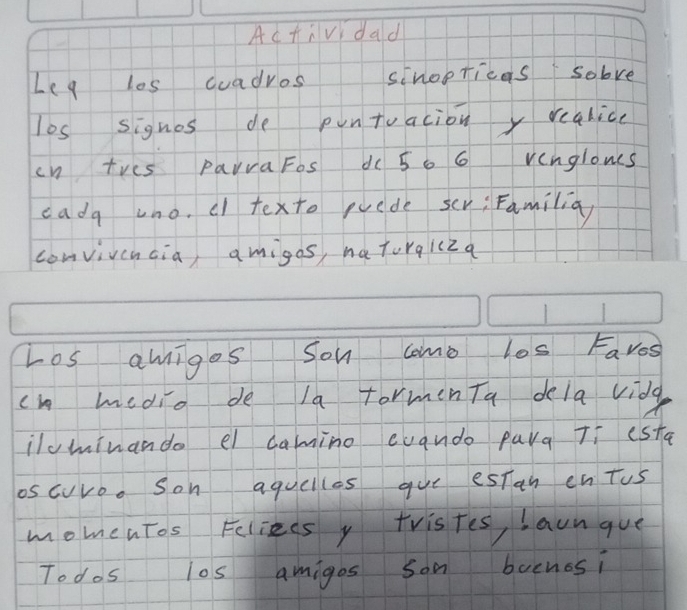 Actividad
Lea los cuadros sinopticas sobre
los signos de puntuación y realice
en tres parraFos de 5 o 6 renglones
cada uno. el texto puede ser: Familia,
convivencia, amigos, naturaleza
Los amigos Son como los Faros
en medio de la tormenta dela vida
iluminando el camino cuando para Ti esta
oscuro. Son aquellos que estan en Tus
momentos Felices y tristes, aunque
Todos los amigos son buenos